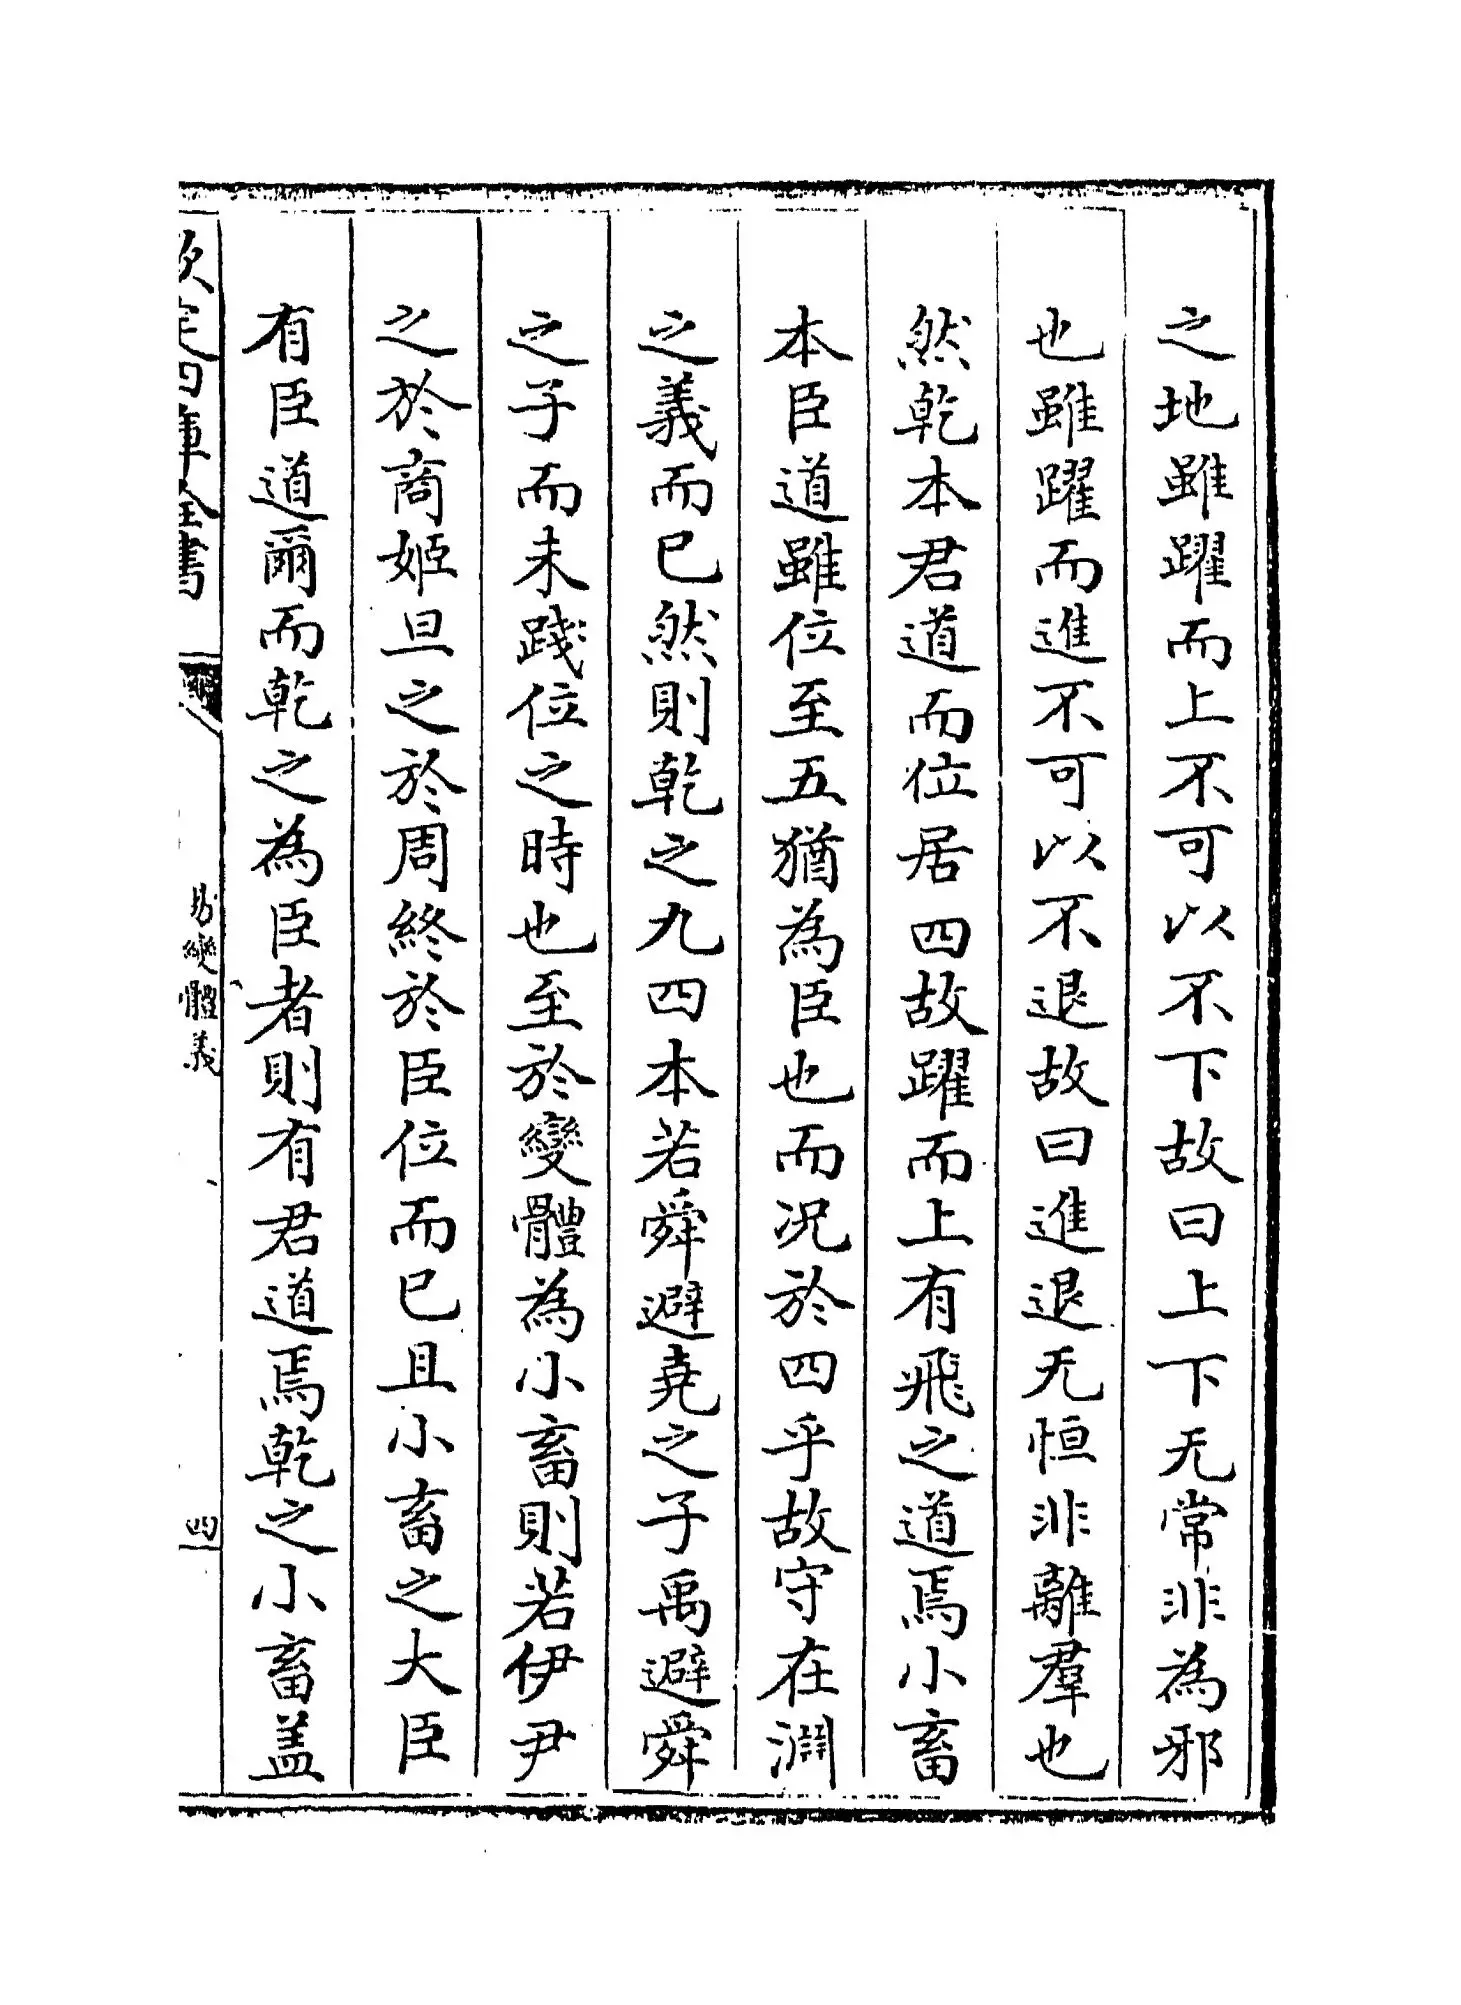 之地雖躍而上不可以不下故曰上下无常非為邪
也雖躍而進不可以不退故曰進退无恒非離羣也
然乾本君道而位居四故躍而上有飛之道焉小畜
本臣道雖位至五猶為臣也而况於四乎故守在淵
之義而已然則乾之九四本若舜避堯之子禹避舜
之子而未踐位之時也至於變體為小畜則若伊尹
之於商姬旦之於周終於臣位而已且小畜之大臣
有臣道爾而乾之為臣者則有君道焉乾之小畜盖
欽定四庫全書
易變體義
四